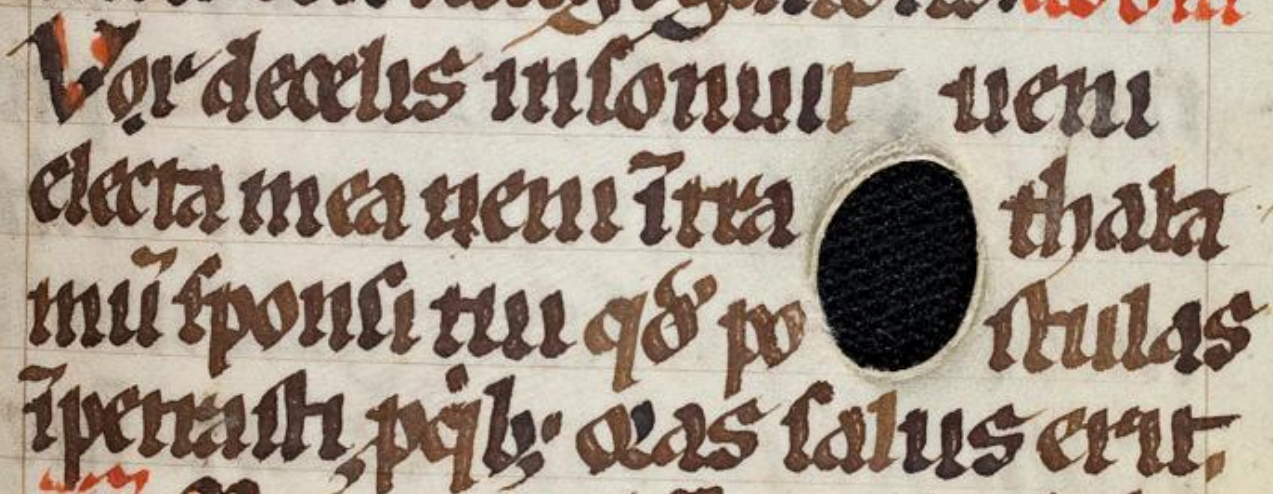 Vox de celis insonuit ueni
electa mea ueni ītra thala
mū sponsi tui qđ postulas
īpetrasti, p qͥbꝫ oras salus erit.